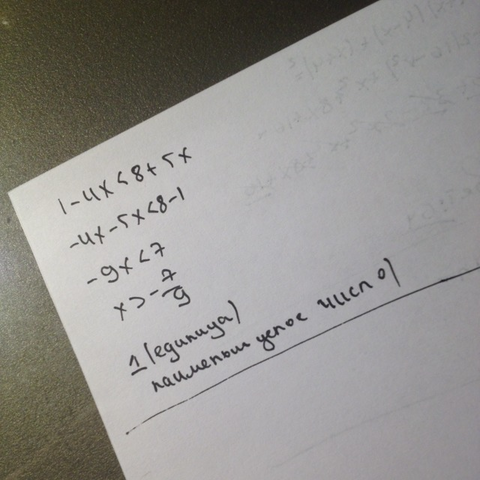 1-4x<8+5x
-4x-5x<8-1
-9x<7
x>-7/9
1 (единица)
наименьш целое число)